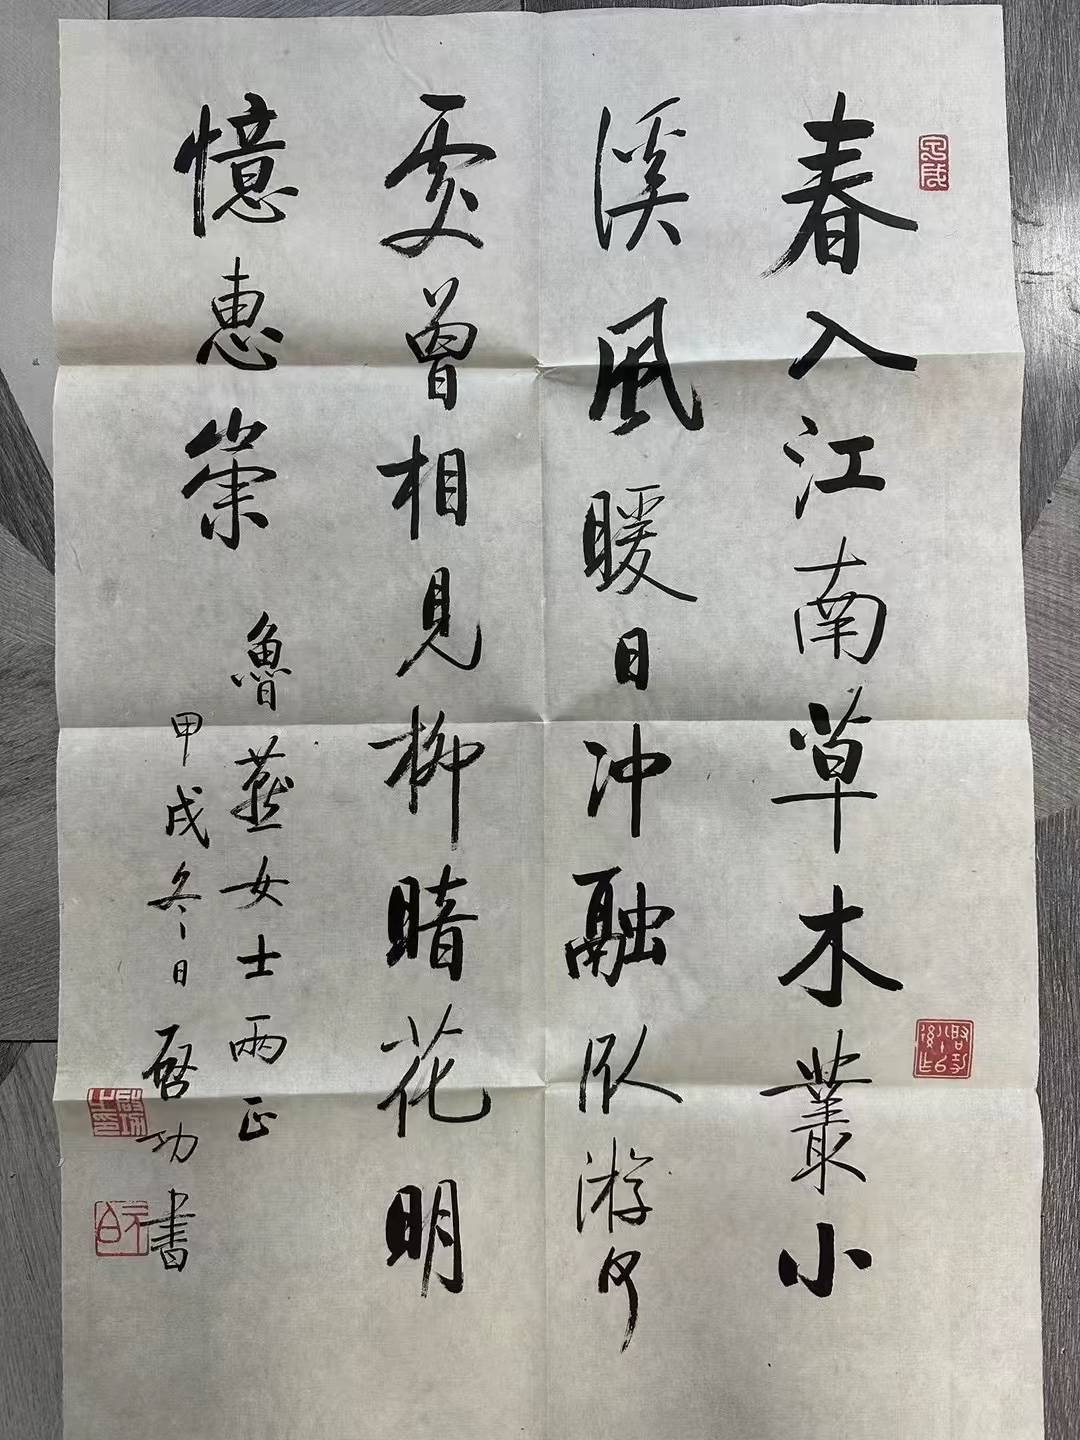 春入江南草木叢小
溪風暖日冲融臥游何
處曾相見柳暗花明
憶惠崇
魯燕女士兩正
甲戌冬日
啓功書